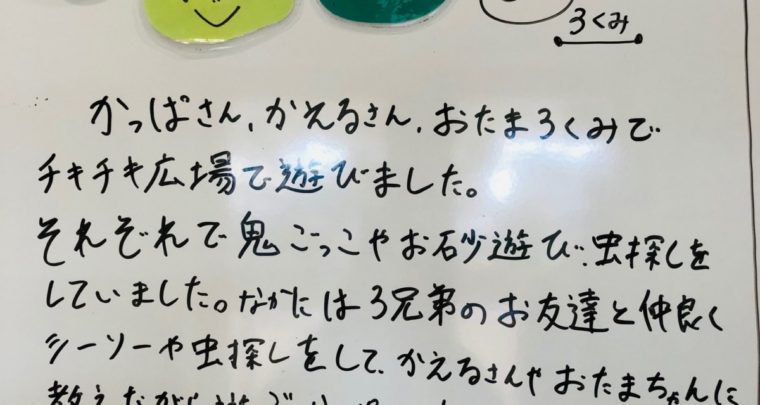 3くみ
かっぱさん、かえるさん、おたま3くみで
チキチキ広場で遊びました。
それぞれで鬼ごっこやお砂遊び、虫探しを
していました。なかたは3兄弟のお友達と仲良く
シーソーや虫探しをして、かえるさんやおたまちゃんに
教えながら遊ぶ